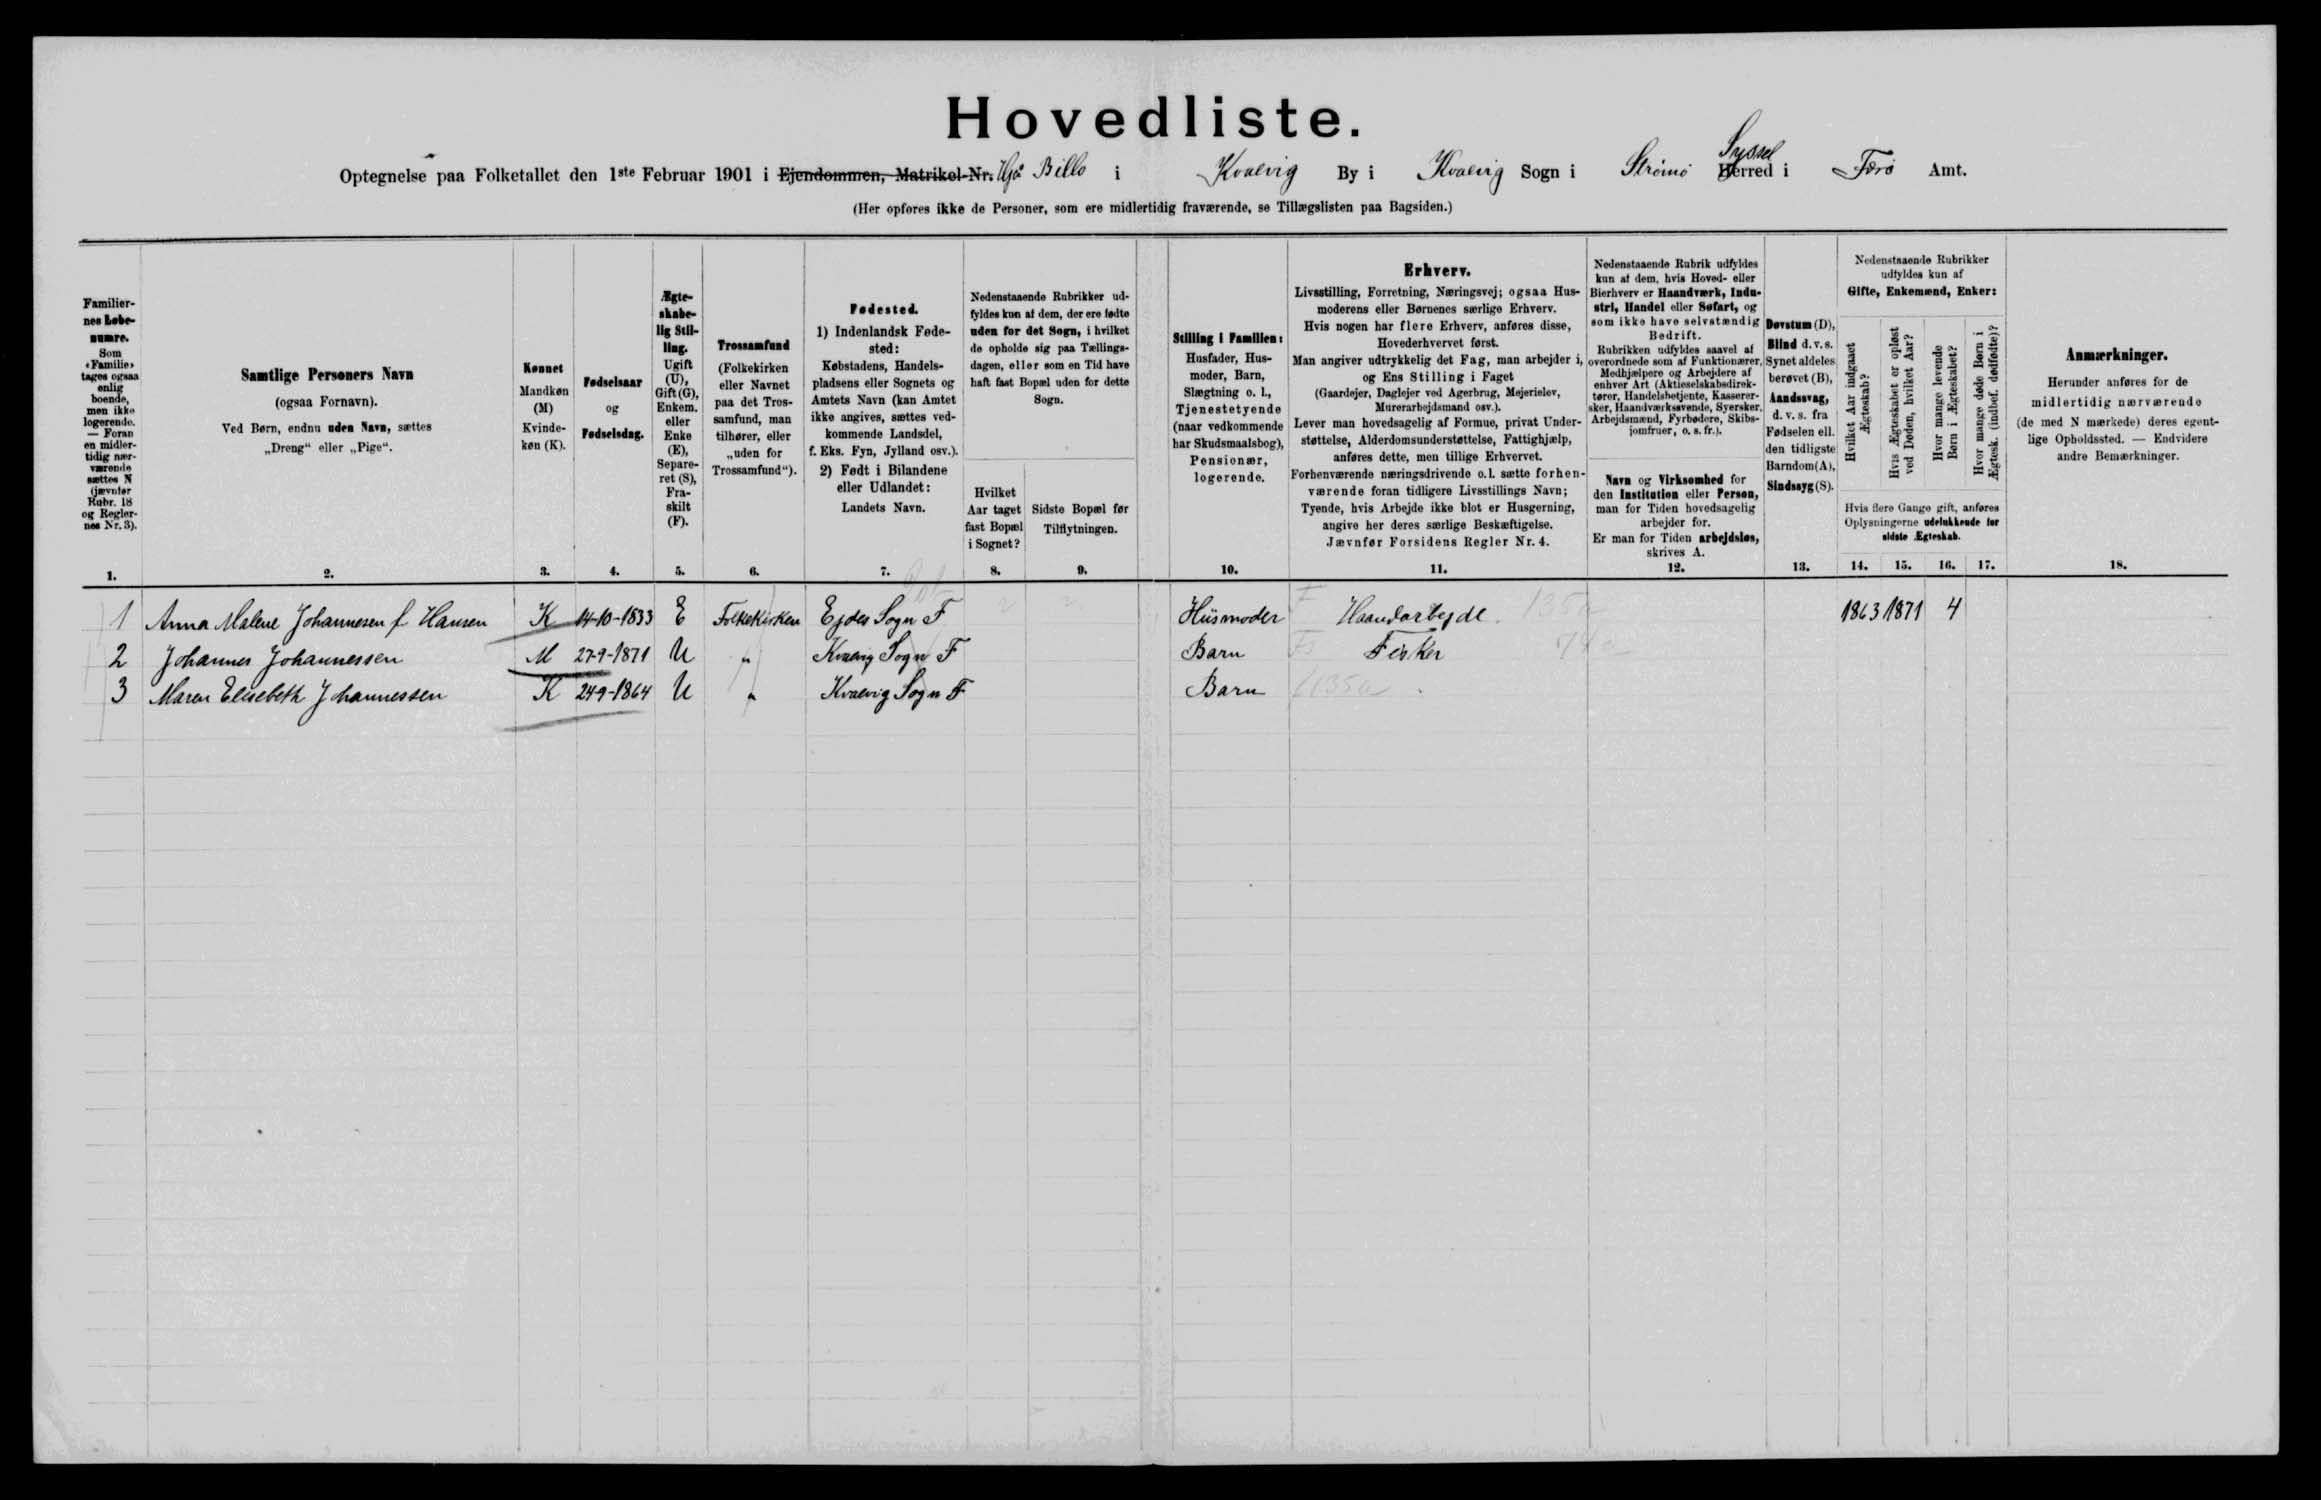 Hovedliste.
Optegnelse paa Folketallet den 1ste Februar 1901 i Ejendommen, Matrikel-Nr. Hjá Billo i Kvalvig By i Kvalvig Sogn i Strømø Syssel Herred i Færø Amt.
(Her opføres ikke de Personer, som ere midlertidig fraværende, se Tillægslisten paa Bagsiden.)
Familiernes Løbenumre.
Som «Familie» tages ogsaa enlig boende, men ikke logerende. — Foran en midlertidig nærværende sættes N (jævnfør Rubr. 18 og Reglernes Nr. 3).
Samtlige Personers Navn
(ogsaa Fornavn).
Ved Børn, endnu uden Navn, sættes
„Dreng“ eller „Pige“.
Kønnet
Mandkøn
(M)
Kvinde-
køn (K).
Fødselsaar
og
Fødselsdag.
Ægte-
skabe-
lig Stil-
ling.
Ugift
(U),
Gift (G),
Enkem.
eller
Enke
(E),
Separe-
ret (S),
Fra-
skilt
(F).
Trossamfund
(Folkekirken
eller Navnet
paa det Tros-
samfund, man
tilhører, eller
„uden for
Trossamfund“).
Fødested.
1) Indenlandsk Føde-
sted:
Købstadens, Handels-
pladsens eller Sognets og
Amtets Navn (kan Amtet
ikke angives, sættes ved-
kommende Landsdel,
f. Eks. Fyn, Jylland osv.).
2) Født i Bilandene
eller Udlandet:
Landets Navn.
Nedenstaaende Rubrikker ud-
fyldes kun af dem, der ere fødte
uden for det Sogn, i hvilket
de opholde sig paa Tællings-
dagen, eller som en Tid have
haft fast Bopæl uden for dette
Sogn.
Hvilket
Aar taget
fast Bopæl
i Sognet?
Sidste Bopæl før
Tilflytningen.
Stilling i Familien:
Husfader, Hus-
moder, Barn,
Slægtning o. l.,
Tjenestetyende
(naar vedkommende
har Skudsmaalsbog),
Pensionær,
logerende.
Erhverv.
Livsstilling, Forretning, Næringsvej; ogsaa Hus-
moderens eller Børnenes særlige Erhverv.
Hvis nogen har flere Erhverv, anføres disse,
Hovederhvervet først.
Man angiver udtrykkelig det Fag, man arbejder i,
og Ens Stilling i Faget
(Gaardejer, Daglejer ved Agerbrug, Mejerielev,
Murerarbejdsmand osv.).
Lever man hovedsagelig af Formue, privat Under-
støttelse, Alderdomsunderstøttelse, Fattighjælp,
anføres dette, men tillige Erhvervet.
Forhenværende næringsdrivende o. l. sætte forhen-
værende foran tidligere Livsstillings Navn;
Tyende, hvis Arbejde ikke blot er Husgerning,
angive her deres særlige Beskæftigelse.
Jævnfør Forsidens Regler Nr. 4.
Nedenstaaende Rubrik udfyldes
kun af dem, hvis Hoved- eller
Bierhverv er Haandværk, Indu-
stri, Handel eller Søfart, og
som ikke have selvstændig
Bedrift.
Rubrikken udfyldes saavel af
overordnede som af Funktionærer,
Medhjælpere og Arbejdere af
enhver Art (Aktieselskabsdirek-
tører, Handelsbetjente, Kasserer-
sker, Haandværkssvende, Syersker,
Arbejdsmænd, Fyrbødere, Skibs-
jomfruer, o. s. fr.).
Navn og Virksomhed for
den Institution eller Person,
man for Tiden hovedsagelig
arbejder for.
Er man for Tiden arbejdsløs,
skrives A.
Døvstum (D),
Blind d. v. s.
Synet aldeles
berøvet (B),
Aandssvag,
d. v. s. fra
Fødselen ell.
den tidligste
Barndom (A),
Sindssyg (S).
Nedenstaaende Rubrikker
udfyldes kun af
Gifte, Enkemænd, Enker:
Hvilket Aar indgaaet
Ægteskab?
Hvis Ægteskabet er opløst
ved Døden, hvilket Aar?
Hvor mange levende
Børn i Ægteskabet?
Hvor mange døde Børn i
Ægtesk. (indbef. dødfødte)?
Hvis flere Gange gift, anføres
Oplysningerne udelukkende for
sidste Ægteskab.
Anmærkninger.
Herunder anføres for de
midlertidig nærværende
(de med N mærkede) deres egent-
lige Opholdssted. — Endvidere
andre Bemærkninger.
1. 2. 3. 4. 5. 6. 7. 8. 9. 10. 11. 12. 13. 14. 15. 16. 17. 18.
1 Anna Malene Johannesen f. Hansen K 14-10-1833 E Folkekirken Ejdes Sogn F Húsmoder Haandarbejde. 135a 1863 1871 4
2 Johannes Johannessen M 27-9-1871 U " Kvalvig Sogn F Barn Fisker
3 Maren Elisebeth Johannessen K 24-9-1864 U " Kvalvig Sogn F Barn 135a